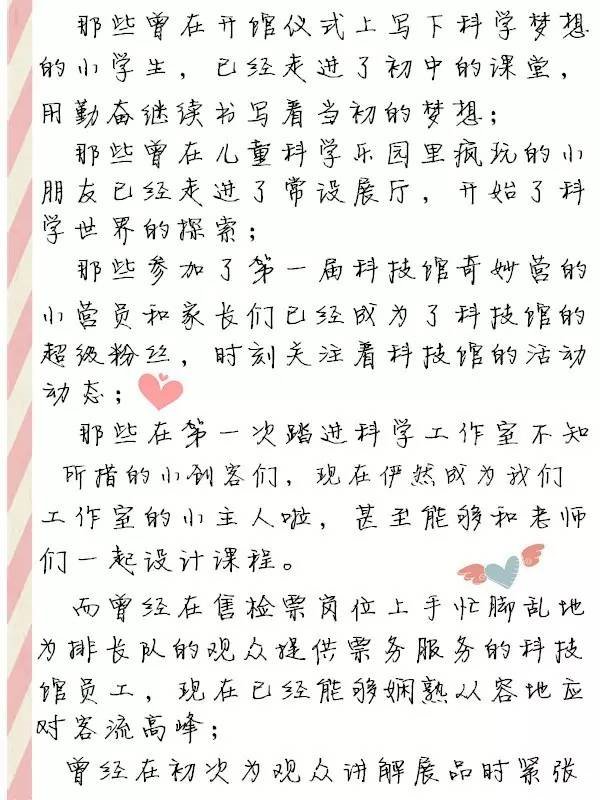 那些曾在开馆仪式上写下科学梦想
的小学生，已经走进了初中的课堂，
用勤奋继续书写着当初的梦想；
那些曾在儿童科学乐园里疯玩的小
朋友已经走进了常设展厅，开始了科
学世界的探索；
那些参加了第一届科技馆奇妙营的
小营员和家长们已经成为了科技馆的
超级粉丝，时刻关注着科技馆的活动
动态；
那些在第一次踏进科学工作室不知
所措的小创客们，现在俨然成为我们
工作室的小主人啦，甚至能够和老师
们一起设计课程。
而曾经在售检票岗位上手忙脚乱地
为排长队的观众提供票务服务的科技
馆员工，现在已经能够娴熟从容地应
对客流高峰；
曾经在初次为观众讲解展品时紧张